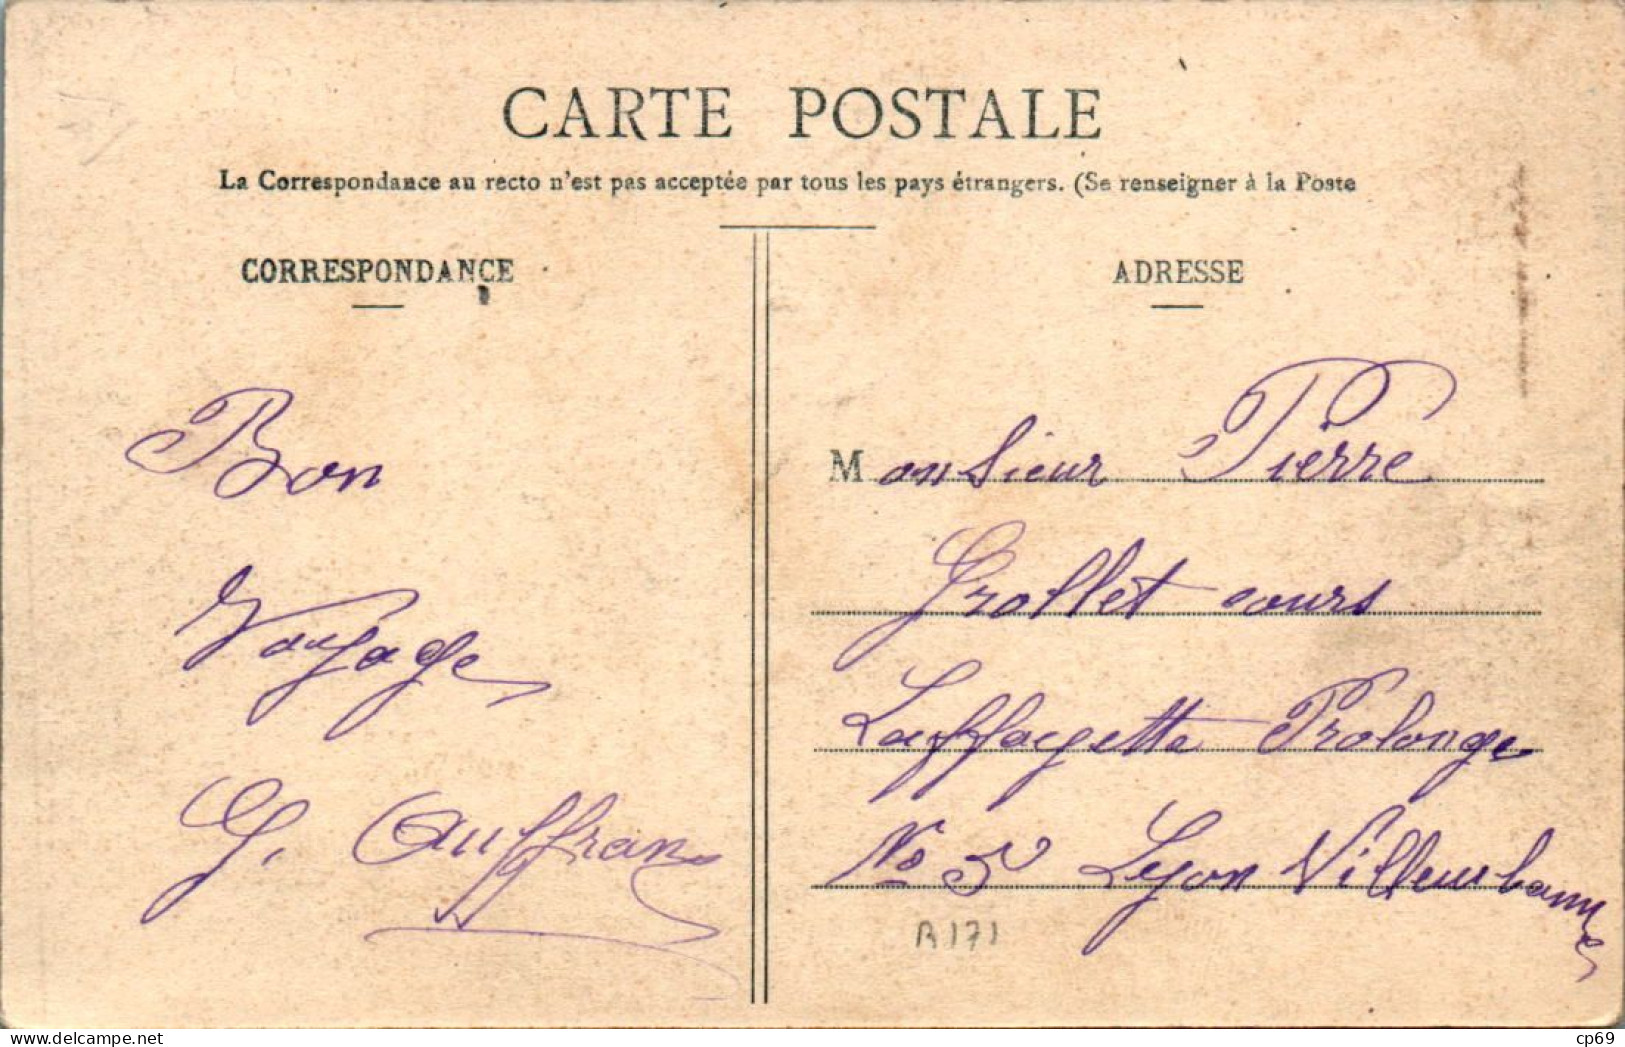 CARTE POSTALE
La Correspondance au recto n'est pas acceptée par tous les pays étrangers. (Se renseigner à la Poste
CORRESPONDANCE
Bon
Voyage
G. Auffran
ADRESSE
Monsieur Pierre
Grollet cours
Laffayette Prolonge
No 5 Lyon Villeurbanne
R171
delcampe.net
cp69